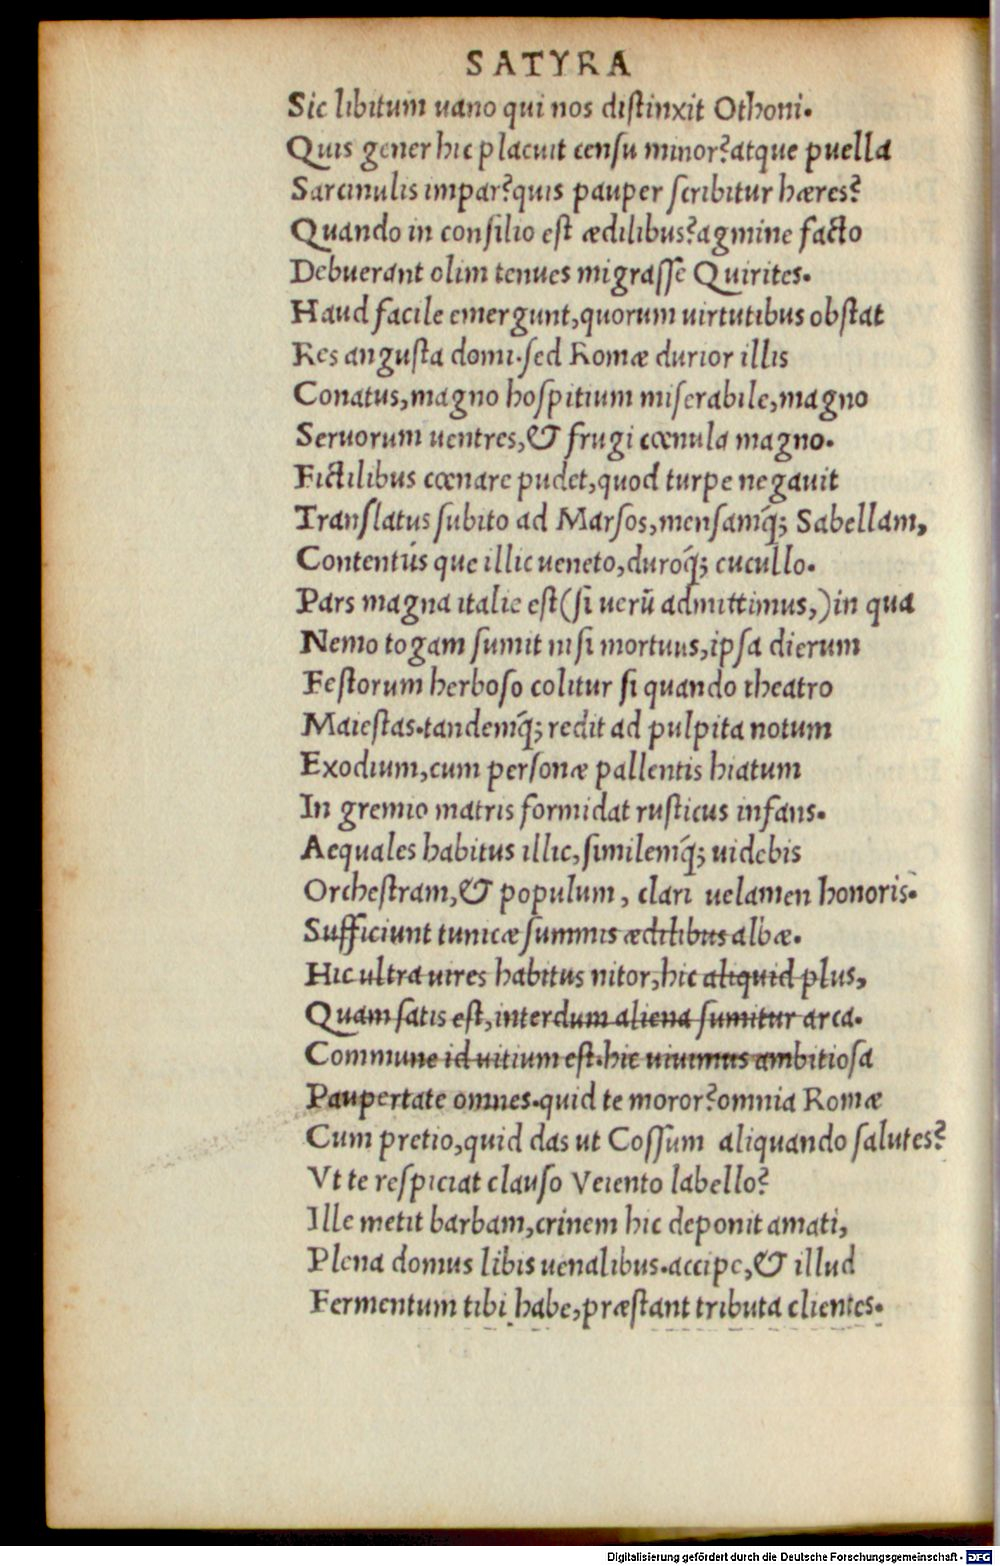 SATYRA
Sic libitum uano qui nos distinxit Othoni.
Quis gener hic placuit censu minor?atque puella
Sarcinulis impar?quis pauper scribitur hæres?
Quando in consilio est ædilibus?agmine facto
Debuerant olim tenues migrasse Quirites.
Haud facile emergunt,quorum uirtutibus obstat
Res angusta domi.sed Romæ durior illis
Conatus,magno hospitium miserabile,magno
Seruorum uentres,& frugi cœnula magno.
Fictilibus cœnare pudet,quod turpe negauit
Translatus subito ad Marsos,mensamq́; Sabellam,
Contentús que illic ueneto,duroq́; cucullo.
Pars magna italie est(si uerũ admittimus,)in qua
Nemo togam sumit nisi mortuus,ipsa dierum
Festorum herboso colitur si quando theatro
Maiestas.tandemq́; redit ad pulpita notum
Exodium,cum personæ pallentis hiatum
In gremio matris formidat rusticus infans.
Aequales habitus illic,similemq́; uidebis
Orchestram,& populum, clari uelamen honoris.
Sufficiunt tunicæ summis ædilibus albæ.
Hic ultra uires habitus nitor,hic aliquid plus,
Quam satis est,interdum aliena sumitur arca.
Commune id uitium est.hic uiuimus ambitiosa
Paupertate omnes.quid te moror?omnia Romæ
Cum pretio,quid das ut Cossum aliquando salutes?
Vt te respiciat clauso Veiento labello?
Ille metit barbam,crinem hic deponit amati,
Plena domus libis uenalibus.accipe,& illud
Fermentum tibi habe,præstant tributa clientes.
Digitalisierung gefördert durch die Deutsche Forschungsgemeinschaft - DFG